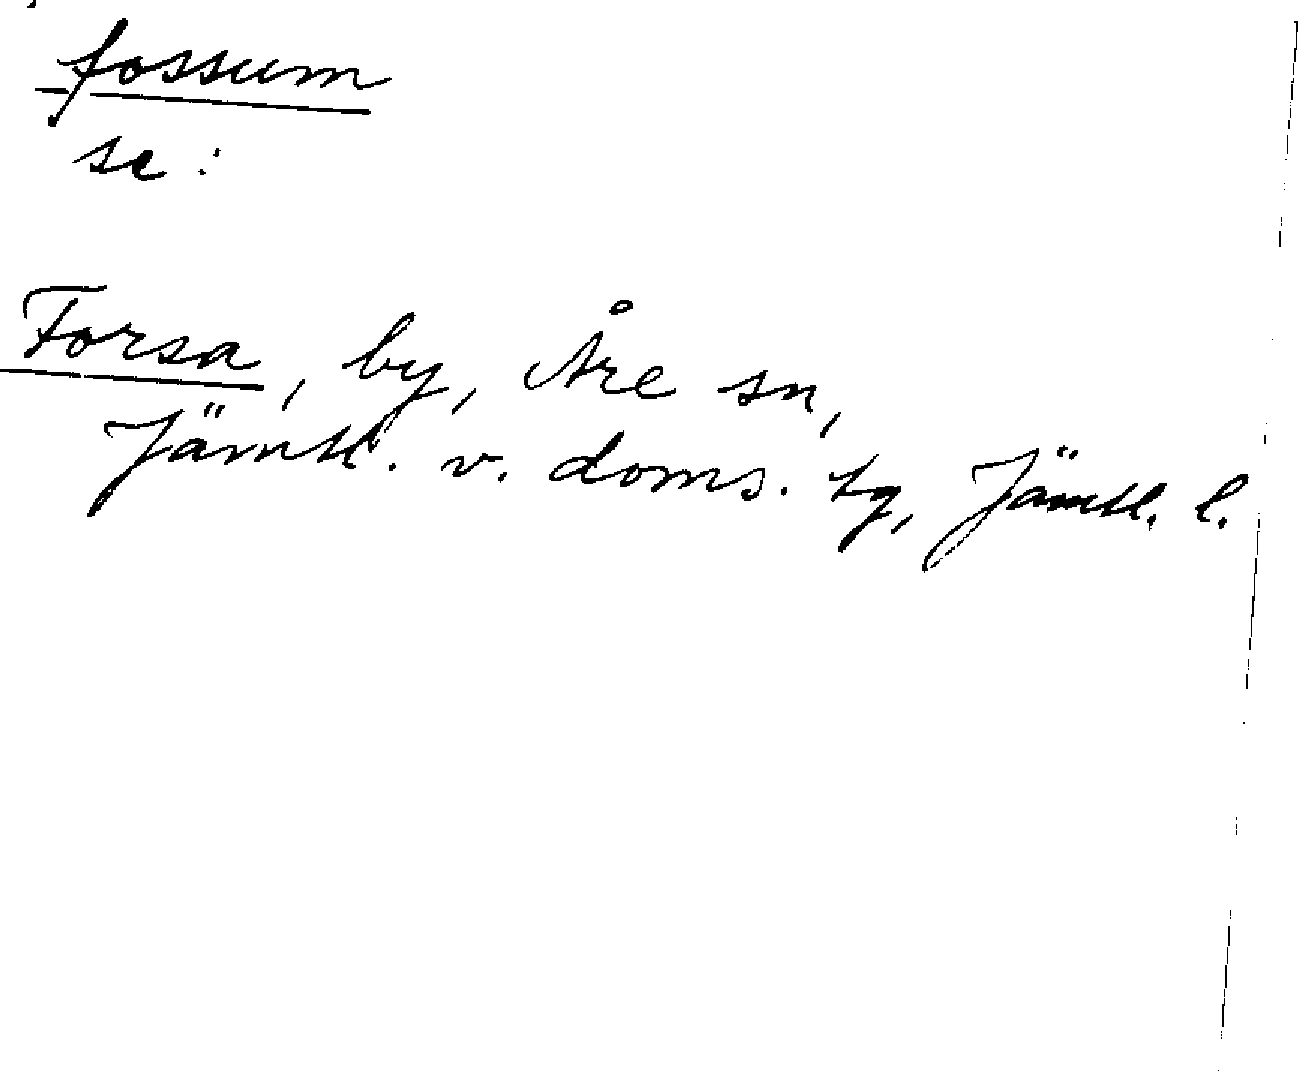 fossum
se:
Forsa, by, Åre sn,
Jämtl. v. doms. tg, Jämtl. l.